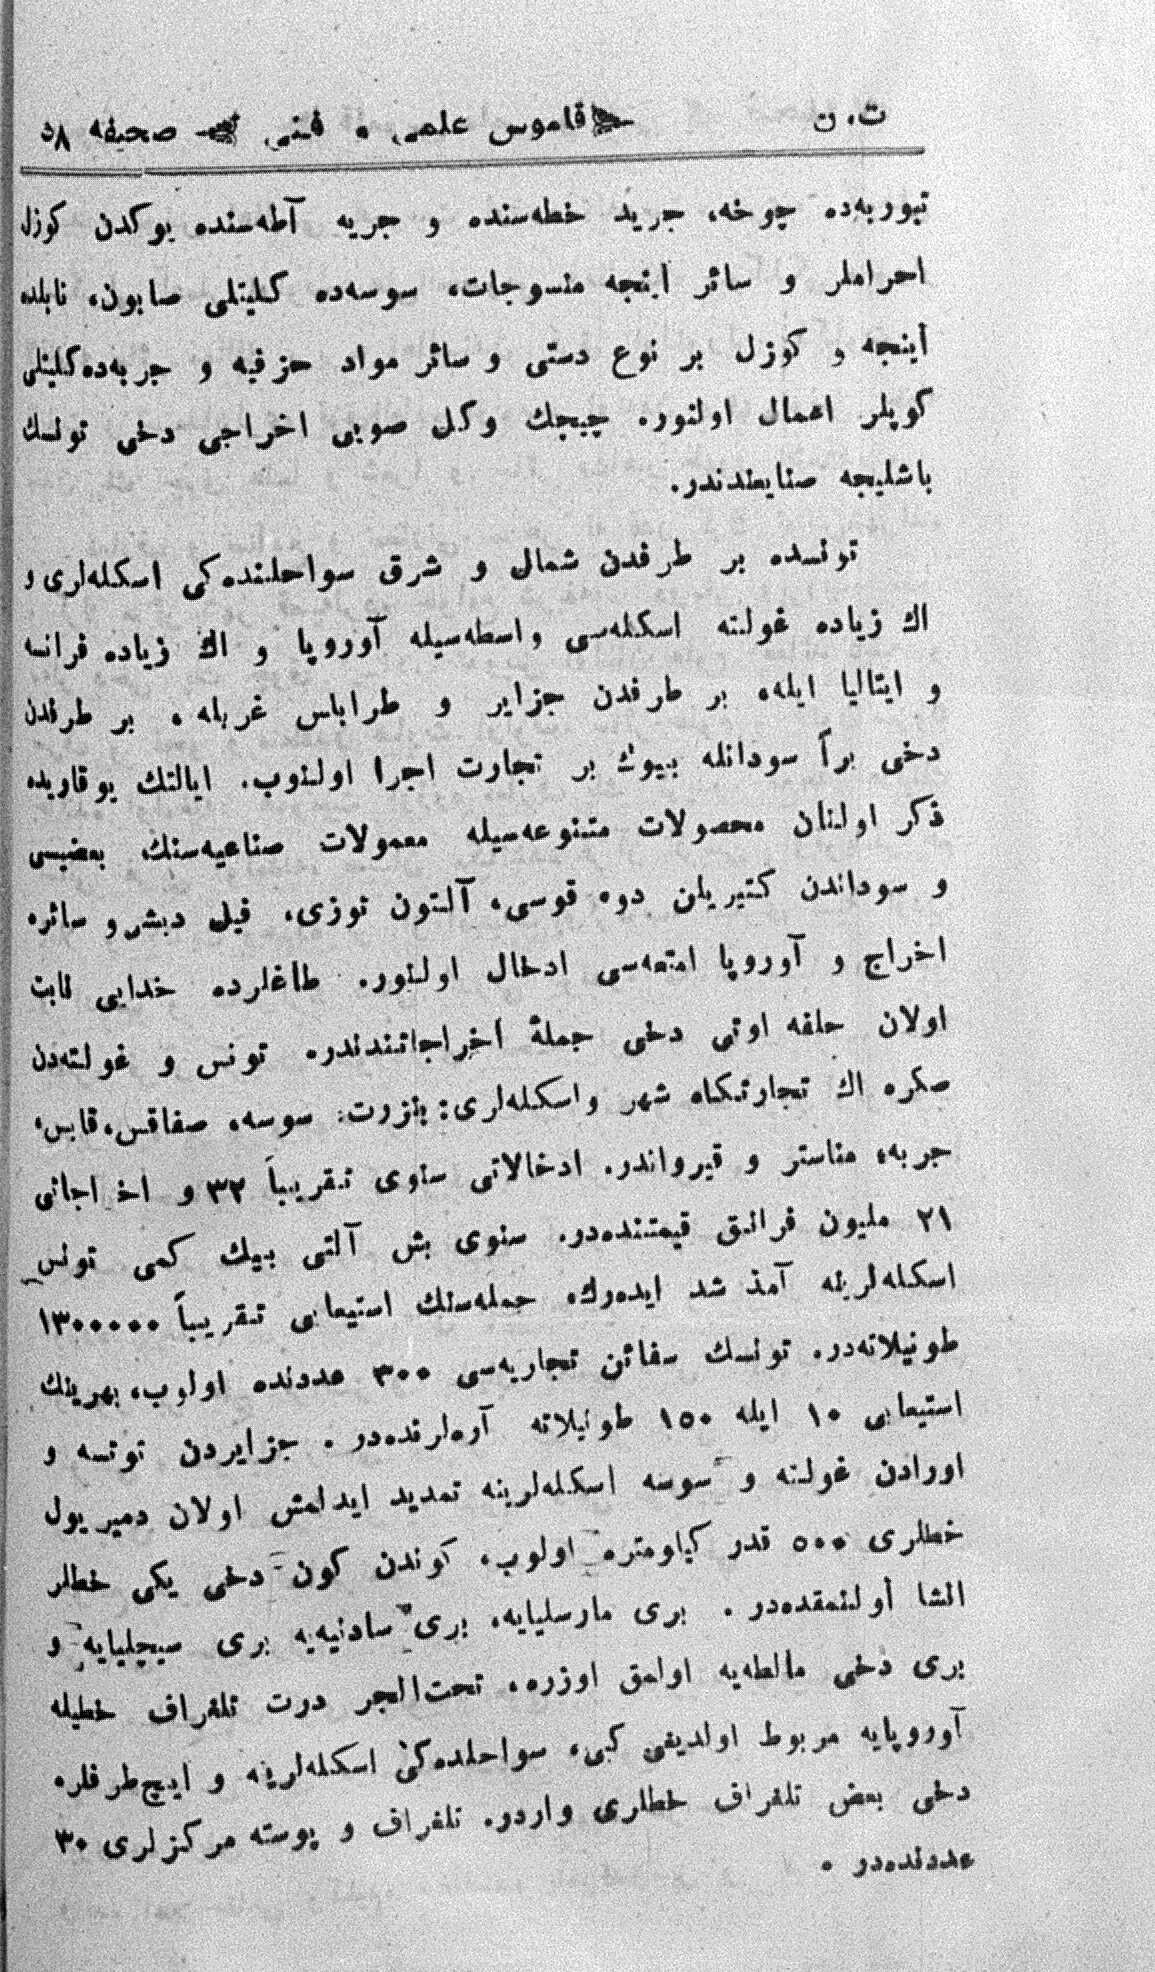 ت. ن قاموس علمی . فنی صحیفه ٥٨
تبوربه‌ده چوخه، جرید خطه‌سنده و جربه آطه‌سنده یوکدن کوزل
احراملر و سائر اینجه منسوجات، سوسه‌ده کلیتلی صابون، نابلده
اینجه و کوزل بر نوع دستی و سائر مواد حزفیه و جربه‌ده کلیتلی
کوپلر اعمال اولنور. چیچك وکل صویی اخراجی دخی تونسك
باشلیجه صنایعندندر.
تونسده بر طرفدن شمال و شرق سواحلنده‌کی اسکله‌لری و
اك زیاده غولته اسکله‌سی واسطه‌سیله آوروپا و اك زیاده فرانسه
و ایتالیا ایله، بر طرفدن جزایر و طرابلس غربله، بر طرفدن
دخی براً سودانله بیوك بر تجارت اجرا اولنوب. ایالتك یوقاریده
ذکر اولنان محصولات متنوعه‌سیله معمولات صناعیه‌سنك بعضیسی
و سوداندن کتیریلن دوه قوسی، آلتون توزی، فیل دیشی و سائره
اخراج و آوروپا امتعه‌سی ادخال اولنور. طاغلرده خدایی نابت
اولان حلفه اوتی دخی جملهٔ اخراجاتندندر. تونس و غولته‌دن
صکره اك تجارتکاه شهر واسکله‌لری: بنزرت، سوسه، صفاقس، قابس،
جربه، مناستر و قیرواندر. ادخالاتی سنوی تقریباً ٣٢ و اخراجاتی
٢١ ملیون فرانق قیمتنده‌در. سنوی بش آلتی بیك کمی تونس
اسکله‌لرینه آمذ شد ایده‌رك، جمله‌سنك استیعابی تقریباً ١٣٠٠٠٠٠
طونیلاته‌در. تونسك سفائن تجاریه‌سی ٣٠٠ عددنده اولوب، بهرینك
استیعابی ١٠ ایله ١٥٠ طونیلاته آره‌لرنده‌در . جزایردن تونسه و
اورادن غولته و سوسه اسکله‌لرینه تمدید ایدلمش اولان دمیریول
خطلری ٥٠٠ قدر کیلومتره اولوب، کوندن کون دخی یکی خطلر
انشا أولنمقده‌در . بری مارسلیایه، بری سادنیه‌یه بری سیچلیایه و
بری دخی مالطه‌یه اولمق اوزره، تحت‌البحر درت تلغراف خطیله
آوروپایه مربوط اولدیغی کبی، سواحلده‌کی اسکله‌لرینه و ایچ طرفلره
دخی بعض تلغراف خطلری واردر. تلغراف و پوسته مرکزلری ٣٠
عددنده‌در .